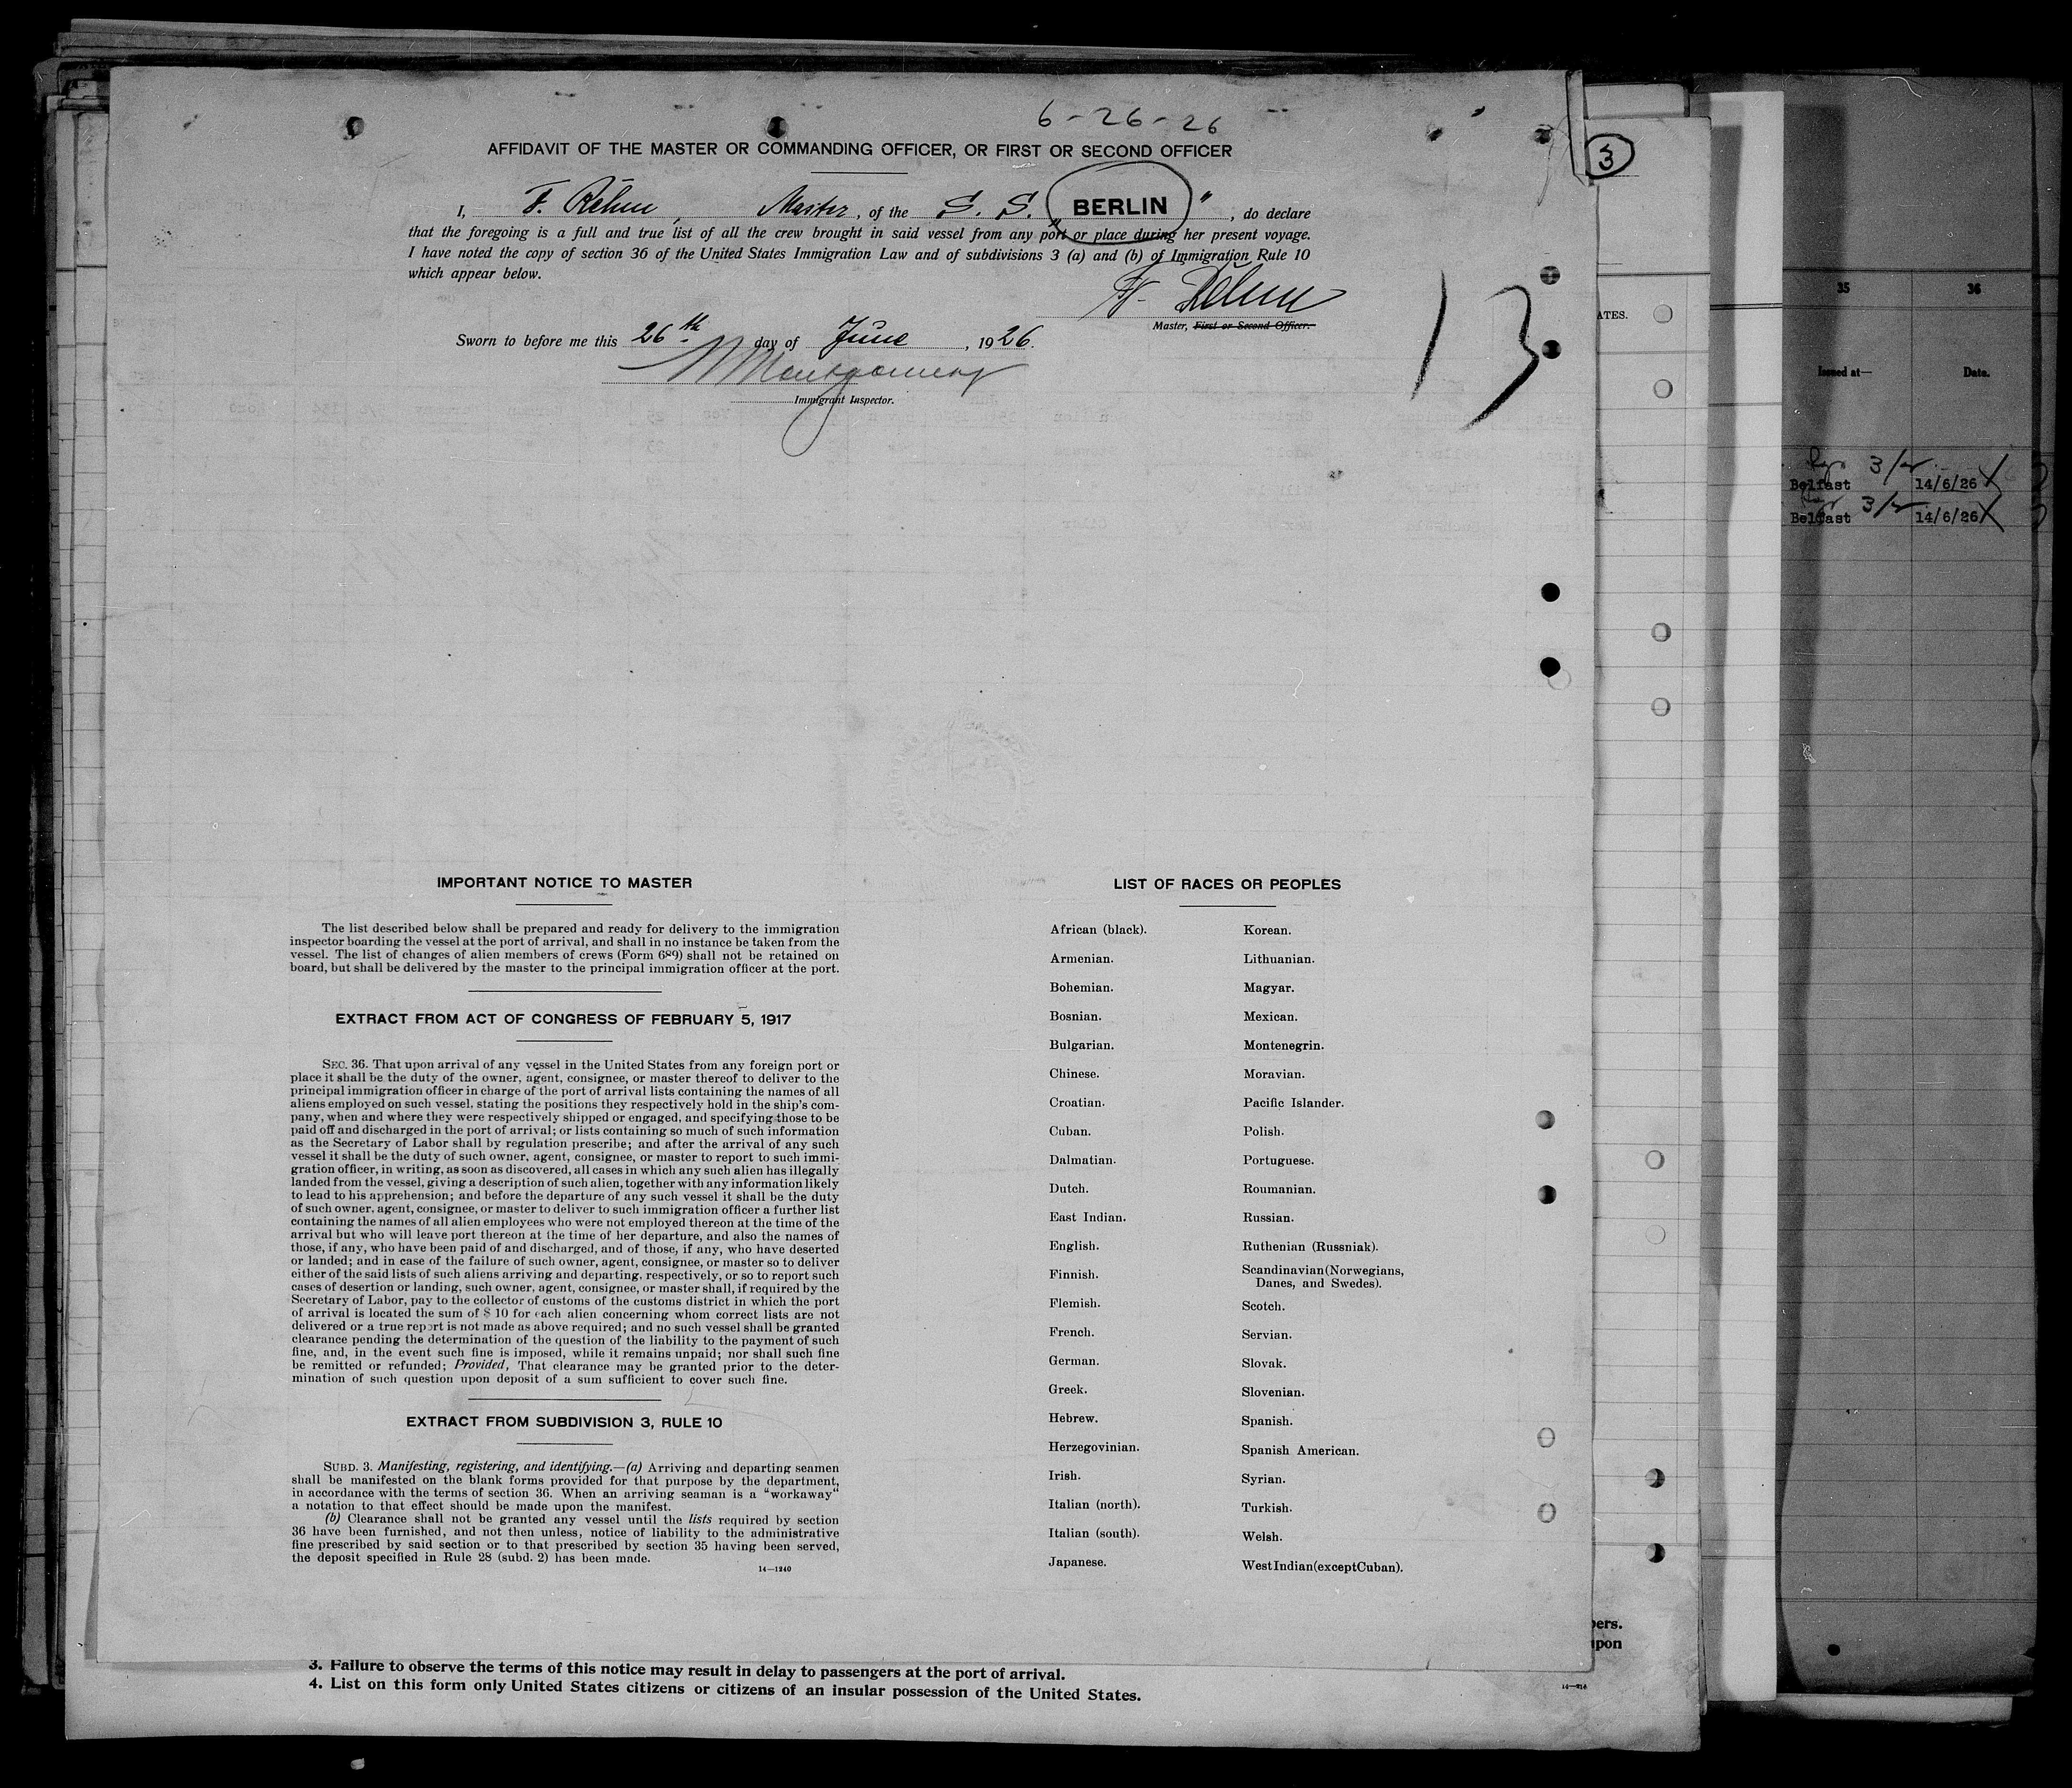 6-26-26
AFFIDAVIT OF THE MASTER OR COMMANDING OFFICER, OR FIRST OR SECOND OFFICER
I, F. Rehm, Master, of the S. S. „BERLIN", do declare
that the foregoing is a full and true list of all the crew brought in said vessel from any port or place during her present voyage.
I have noted the copy of section 36 of the United States Immigration Law and of subdivisions 3 (a) and (b) of Immigration Rule 10
which appear below.
Master, First or Second Officer.
Sworn to before me this 26th day of June, 1926.
Montgomery
Immigrant Inspector.
13
3
IMPORTANT NOTICE TO MASTER
The list described below shall be prepared and ready for delivery to the immigration
inspector boarding the vessel at the port of arrival, and shall in no instance be taken from the
vessel. The list of changes of alien members of crews (Form 689) shall not be retained on
board, but shall be delivered by the master to the principal immigration officer at the port.
EXTRACT FROM ACT OF CONGRESS OF FEBRUARY 5, 1917
SEC. 36. That upon arrival of any vessel in the United States from any foreign port or
place it shall be the duty of the owner, agent, consignee, or master thereof to deliver to the
principal immigration officer in charge of the port of arrival lists containing the names of all
aliens employed on such vessel, stating the positions they respectively hold in the ship's com-
pany, when and where they were respectively shipped or engaged, and specifying those to be
paid off and discharged in the port of arrival; or lists containing so much of such information
as the Secretary of Labor shall by regulation prescribe; and after the arrival of any such
vessel it shall be the duty of such owner, agent, consignee, or master to report to such immi-
gration officer, in writing, as soon as discovered, all cases in which any such alien has illegally
landed from the vessel, giving a description of such alien, together with any information likely
to lead to his apprehension; and before the departure of any such vessel it shall be the duty
of such owner, agent, consignee, or master to deliver to such immigration officer a further list
containing the names of all alien employees who were not employed thereon at the time of the
arrival but who will leave port thereon at the time of her departure, and also the names of
those, if any, who have been paid of and discharged, and of those, if any, who have deserted
or landed; and in case of the failure of such owner, agent, consignee, or master so to deliver
either of the said lists of such aliens arriving and departing, respectively, or so to report such
cases of desertion or landing, such owner, agent, consignee, or master shall, if required by the
Secretary of Labor, pay to the collector of customs of the customs district in which the port
of arrival is located the sum of $ 10 for each alien concerning whom correct lists are not
delivered or a true report is not made as above required; and no such vessel shall be granted
clearance pending the determination of the question of the liability to the payment of such
fine, and, in the event such fine is imposed, while it remains unpaid; nor shall such fine
be remitted or refunded; Provided, That clearance may be granted prior to the deter-
mination of such question upon deposit of a sum sufficient to cover such fine.
EXTRACT FROM SUBDIVISION 3, RULE 10
SUBD. 3. Manifesting, registering, and identifying.—(a) Arriving and departing seamen
shall be manifested on the blank forms provided for that purpose by the department,
in accordance with the terms of section 36. When an arriving seaman is a "workaway"
a notation to that effect should be made upon the manifest.
(b) Clearance shall not be granted any vessel until the lists required by section
36 have been furnished, and not then unless, notice of liability to the administrative
fine prescribed by said section or to that prescribed by section 35 having been served,
the deposit specified in Rule 28 (subd. 2) has been made.
14—1240
LIST OF RACES OR PEOPLES
African (black).
Armenian.
Bohemian.
Bosnian.
Bulgarian.
Chinese.
Croatian.
Cuban.
Dalmatian.
Dutch.
East Indian.
English.
Finnish.
Flemish.
French.
German.
Greek.
Hebrew.
Herzegovinian.
Irish.
Italian (north).
Italian (south).
Japanese.
Korean.
Lithuanian.
Magyar.
Mexican.
Montenegrin.
Moravian.
Pacific Islander.
Polish.
Portuguese.
Roumanian.
Russian.
Ruthenian (Russniak).
Scandinavian (Norwegians,
Danes, and Swedes).
Scotch.
Servian.
Slovak.
Slovenian.
Spanish.
Spanish American.
Syrian.
Turkish.
Welsh.
West Indian (except Cuban).
3. Failure to observe the terms of this notice may result in delay to passengers at the port of arrival.
4. List on this form only United States citizens or citizens of an insular possession of the United States.
ATES.
pers.
upon
35 36
Issued at— Date.
3/
Belfast 14/6/26
3/
Belfast 14/6/26